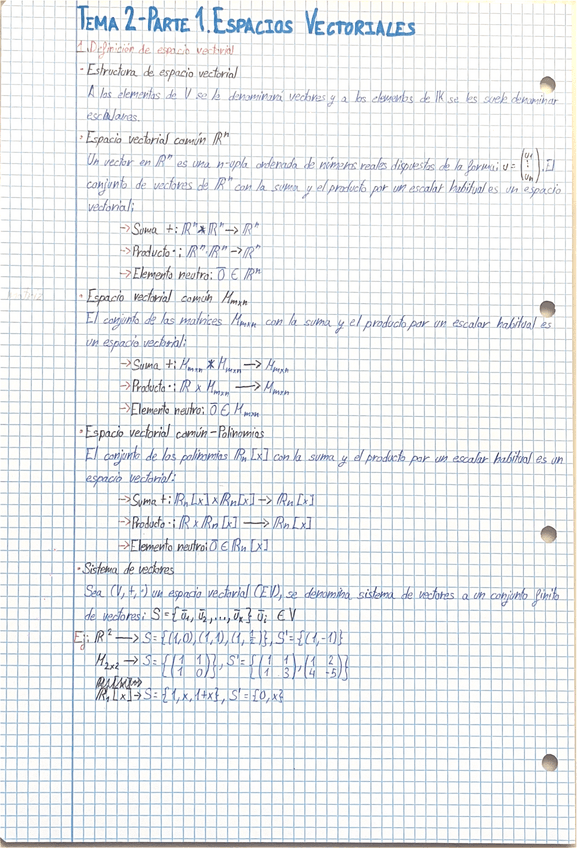 TEMA 2-PARTE 1. ESPACIOS VECTORIALES
1. Definición de espacio vectorial
· Estructura de espacio vectorial
A los elementos de V se le denominará vectores y a los elementos de IK se les suele denominar
escalares.
· Espacio vectorial común ℝⁿ
Un vector en ℝⁿ es una n-upla ordenada de números reales dispuestos de la forma: u = (u₁ ⋮ uₙ). El
conjunto de vectores de ℝⁿ con la suma y el producto por un escalar habitual es un espacio
vectorial:
→ Suma +: ℝⁿ × ℝⁿ → ℝⁿ
→ Producto ·: ℝⁿ · ℝⁿ → ℝⁿ
→ Elemento neutro: 0̄ ∈ ℝⁿ
· Espacio vectorial común Mₘₓₙ
El conjunto de las matrices Mₘₓₙ con la suma y el producto por un escalar habitual es
un espacio vectorial:
→ Suma +: Mₘₓₙ × Mₘₓₙ → Mₘₓₙ
→ Producto ·: ℝ × Mₘₓₙ → Mₘₓₙ
→ Elemento neutro: 0̄ ∈ Mₘₓₙ
· Espacio vectorial común - Polinomios
El conjunto de los polinomios ℝₙ[x] con la suma y el producto por un escalar habitual es un
espacio vectorial:
→ Suma +: ℝₙ[x] × ℝₙ[x] → ℝₙ[x]
→ Producto ·: ℝ × ℝₙ[x] → ℝₙ[x]
→ Elemento neutro: 0̄ ∈ ℝₙ[x]
· Sistema de vectores
Sea (V, +, ·) un espacio vectorial (EV), se denomina sistema de vectores a un conjunto finito
de vectores: S = {ū₁, ū₂, ..., ūₖ} ūᵢ ∈ V
Ej: ℝ² → S = {(1,0), (1,1), (1, ½)}, S' = {(1,-1)}
M₂ₓ₂ → S = {(1 1 / 1 0)}, S' = {(1 1 / 1 3), (1 2 / 4 -5)}
ℝ₁[x] → S = {1, x, 1+x}, S' = {0, x}